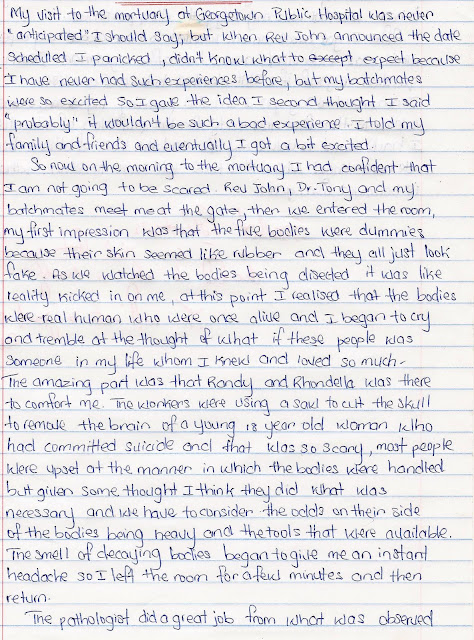 My visit to the mortuary at Georgetown Public Hospital was never
"anticipated" I should say, but when Rev John announced the date
scheduled I panicked, didn't know what to except expect because
I have never had such experiences before, but my batchmates
were so excited so I gave the idea I second thought I said
"probably" it wouldn't be such a bad experience. I told my
family and friends and eventually I got a bit excited.
So now on the morning to the mortuary I had confident that
I am not going to be scared. Rev John, Dr. Tony and my
batchmates meet me at the gate, then we entered the room,
my first impression was that the five bodies were dummies
because their skin seemed like rubber and they all just look
fake. As we watched the bodies being disected it was like
reality kicked in on me, at this point I realised that the bodies
were real human who were once alive and I began to cry
and tremble at the thought of what if these people was
someone in my life whom I knew and loved so much.
The amazing part was that Randy and Rhondella was there
to comfort me. The workers were using a saw to cut the skull
to remove the brain of a young 18 year old woman who
had committed suicide and that was so scary, most people
were upset at the manner in which the bodies were handled
but given some thought I think they did what was
necessary and we have to consider the odds on their side
of the bodies being heavy and the tools that were available.
The smell of decaying bodies began to give me an instant
headache so I left the room for a few minutes and then
return.
The pathologist did a great job from what was observed